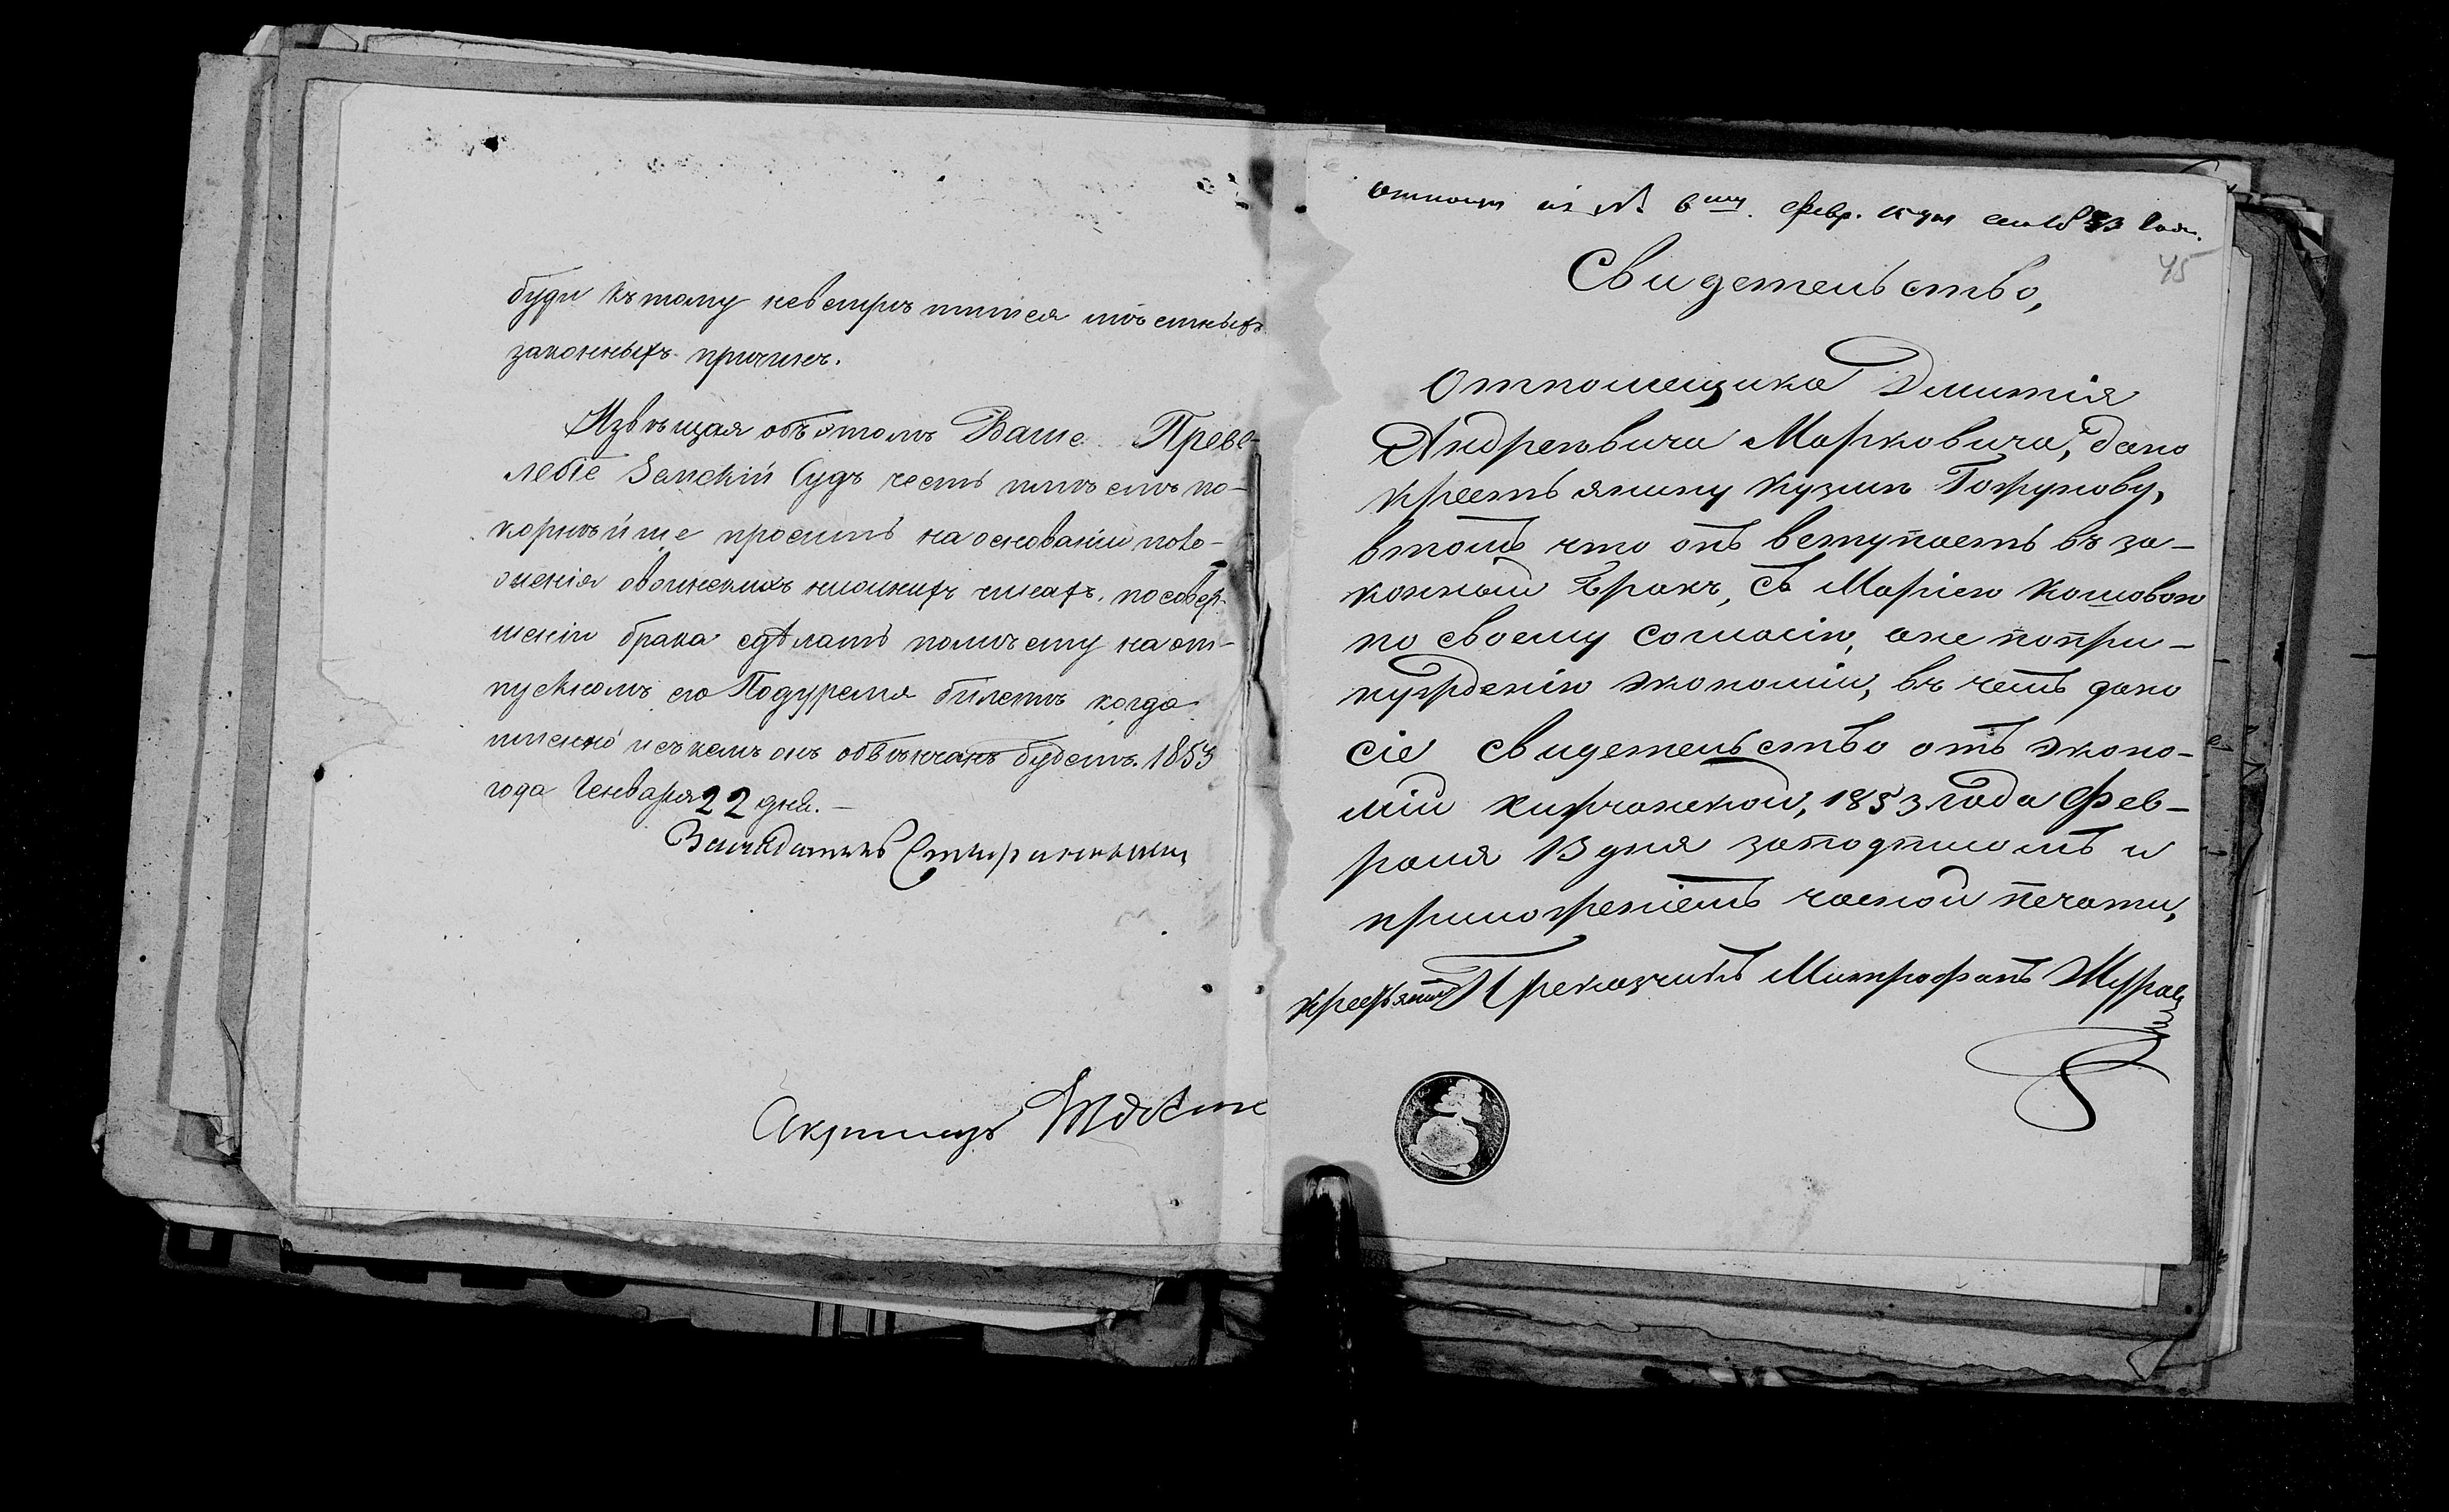 буди къ тому невстрѣтится мѣстныхъ
законныхъ причинъ.
Извѣщая объ этомъ Ваше Препо-
добіе Земскій Судъ честь имѣетъ по-
корнѣйше проситъ на основаніи поло-
женія о воинскихъ нижнихъ чинахъ, по совер-
шеніи брака сдѣлать помѣту на от-
пускномъ его Подуремя билетѣ когда
именно и съ кемъ онъ обвѣнчанъ будетъ. 1853
года Генваря 22 дня.
Засѣдатель
45
Свидетельство,
От помещика Дмитрія
Андреевича Марковича, дано
крестьянину Кузмѣ Горкунову,
в томъ что онъ вступаетъ въ за-
конный бракъ, съ Маріею Кошовою
по своему согласію, а не по при-
нужденію экономіи, въ чемъ дано
сіе свидетельство отъ эконо-
міи 1853 года Фев-
раля 13 дня за подписомъ и
приложеніемъ часной печати,
Приказчикъ Митрофанъ